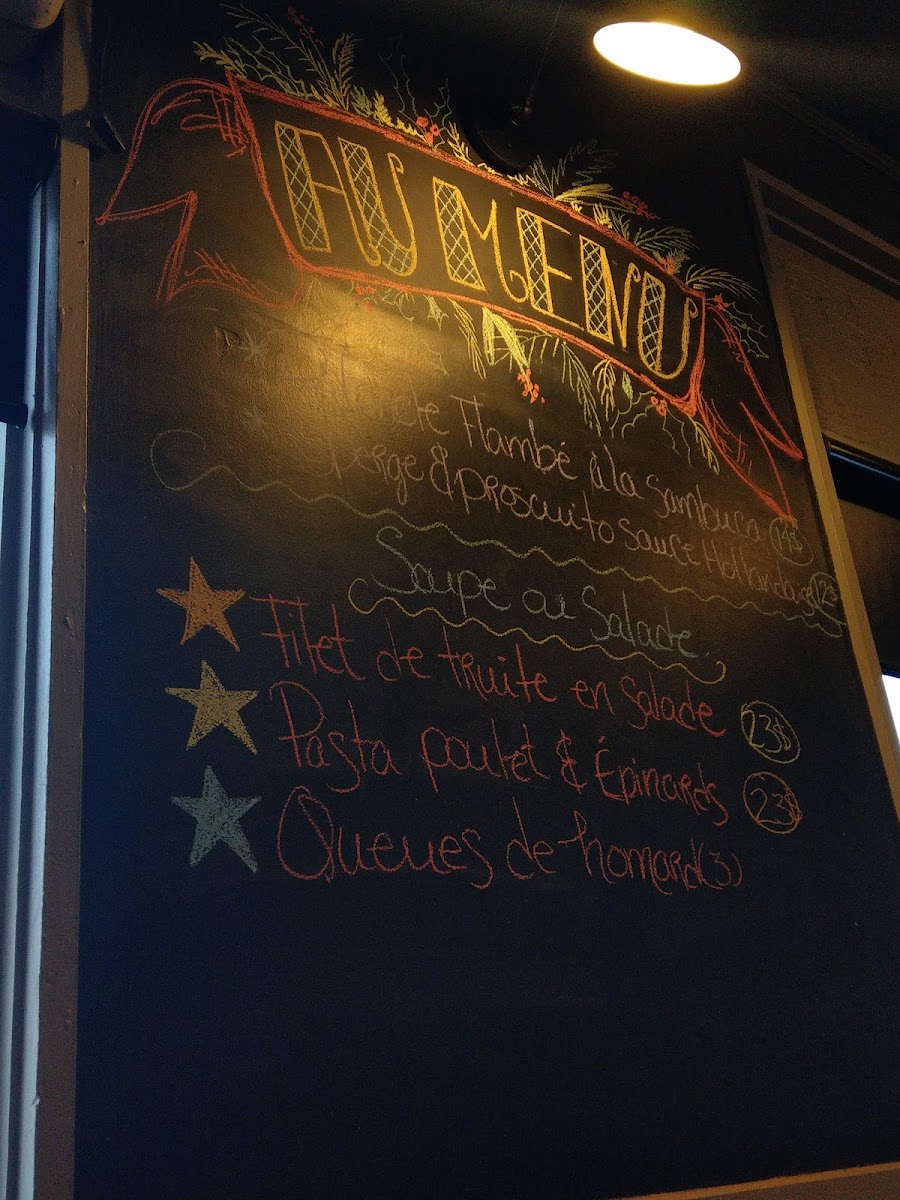 AU MENU
Flambé à la sambuca 14$
& proscuito sauce Hollandaise 12$
Soupe ou Salade
Filet de truite en salade 23$
Pasta poulet & Épinards 23$
Queues de homard (3)